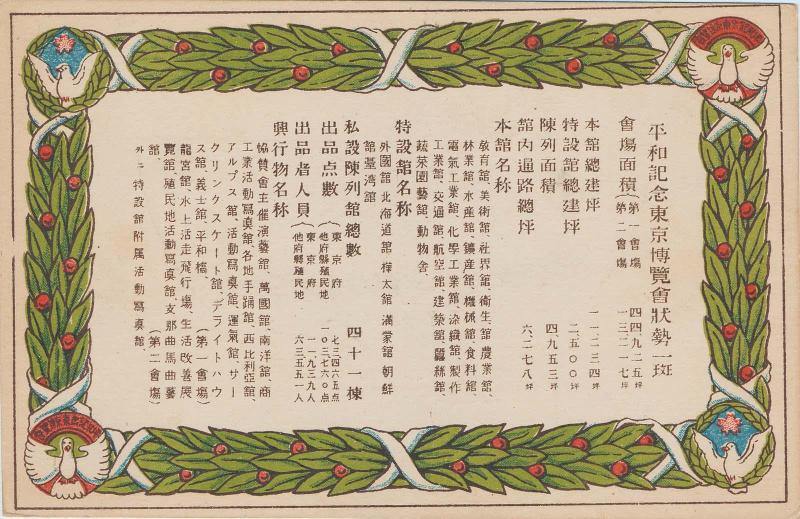 平和記念東京博覽會狀勢一斑
會塲面積（第一會塲 四四、九二五坪
第二會塲 一三、二一七坪
本館總建坪 一一、二三四坪
特設館總建坪 二、五〇〇坪
陳列面積 四、九五三坪
館內通路總坪 六、二七八坪
本館名称
敎育館、美術館、社界館、衛生館、農業館、
林業館、水産館、鑛産館、機械館、食料館
電氣工業館、化學工業館、染織館、製作
工業館、交通館、航空館、建築館、蠶絲館
蔬菜園藝館、動物舍
特設館名称
外國館 北海道館 樺太館 滿蒙館 朝鮮
館 臺湾館
私設陳列館總數 四十一棟
出品点數（東京府 七三、四六五点
他府縣殖民地 一〇三、七六〇点
出品者人員（東京府 一一、九三九人
他府縣殖民地 六三、五五一人
興行物名称
協賛會主催演藝館、萬國館、南洋館、商
工業活動寫眞館、各地手踊館、西比利亞館
アルプス館、活動寫眞館、運氣館、サー
クリンクスケート館、デライトハウ
ス館、義士館、平和橋、（第一會塲）
龍宮館、水上活走飛行塲、生活改善展
覽館、殖民地活動寫眞館、支那曲馬曲藝
館、（第二會塲）
外ニ特設館附属活動寫眞館